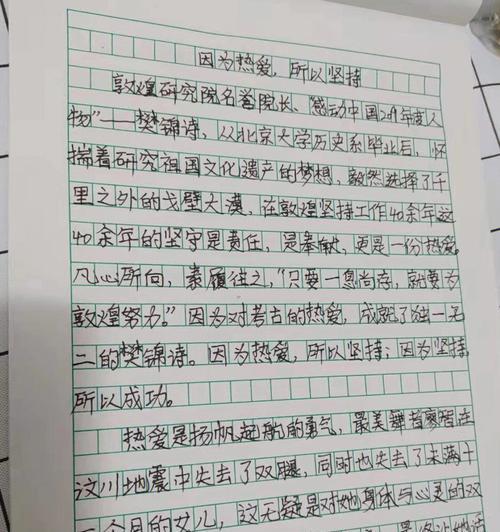 因为热爱，所以坚持
敦煌研究院名誉院长、“感动中国2019年度人
物”——樊锦诗，从北京大学历史系毕业后，怀
揣着研究祖国文化遗产的梦想，毅然选择了千
里之外的戈壁大漠，在敦煌坚持工作40余年这
40余年的坚守是责任，是奉献，更是一份热爱。
凡心所向，素履往之，“只要一息尚存，就要为
敦煌努力。”因为对考古的热爱，成就了独一无
二的樊锦诗。因为热爱，所以坚持；因为坚持，
所以成功。
热爱是扬帆起航的勇气，最美舞者廖智在
汶川地震中失去了双腿，同时也失去了未满十
个月的女儿，这无疑是对她身体与心灵的双